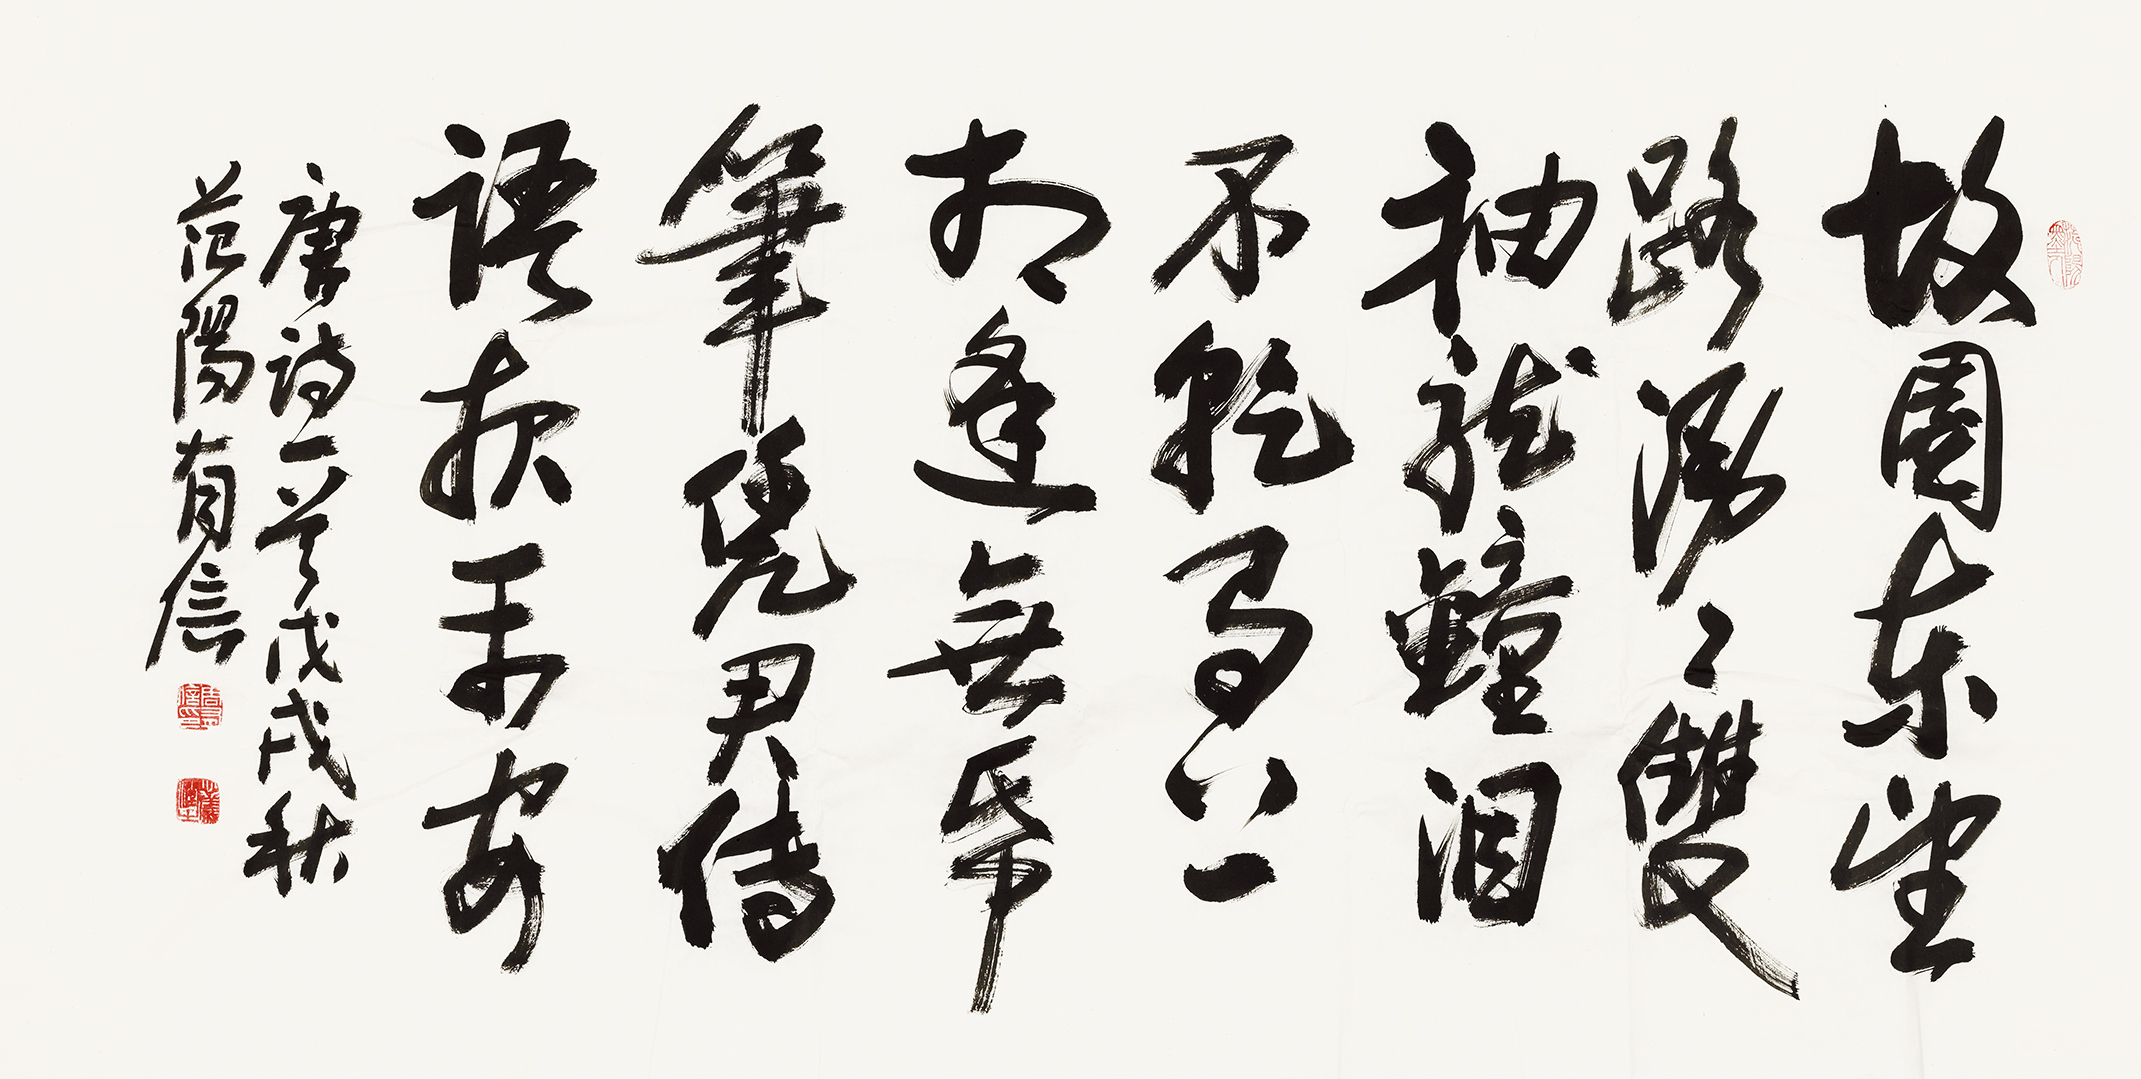 故園東望
路漫々雙
袖龍鐘泪
不乾馬上
相逢無帋
筆凭君傳
語報平安
唐詩一首戊戌秋
范陽有信